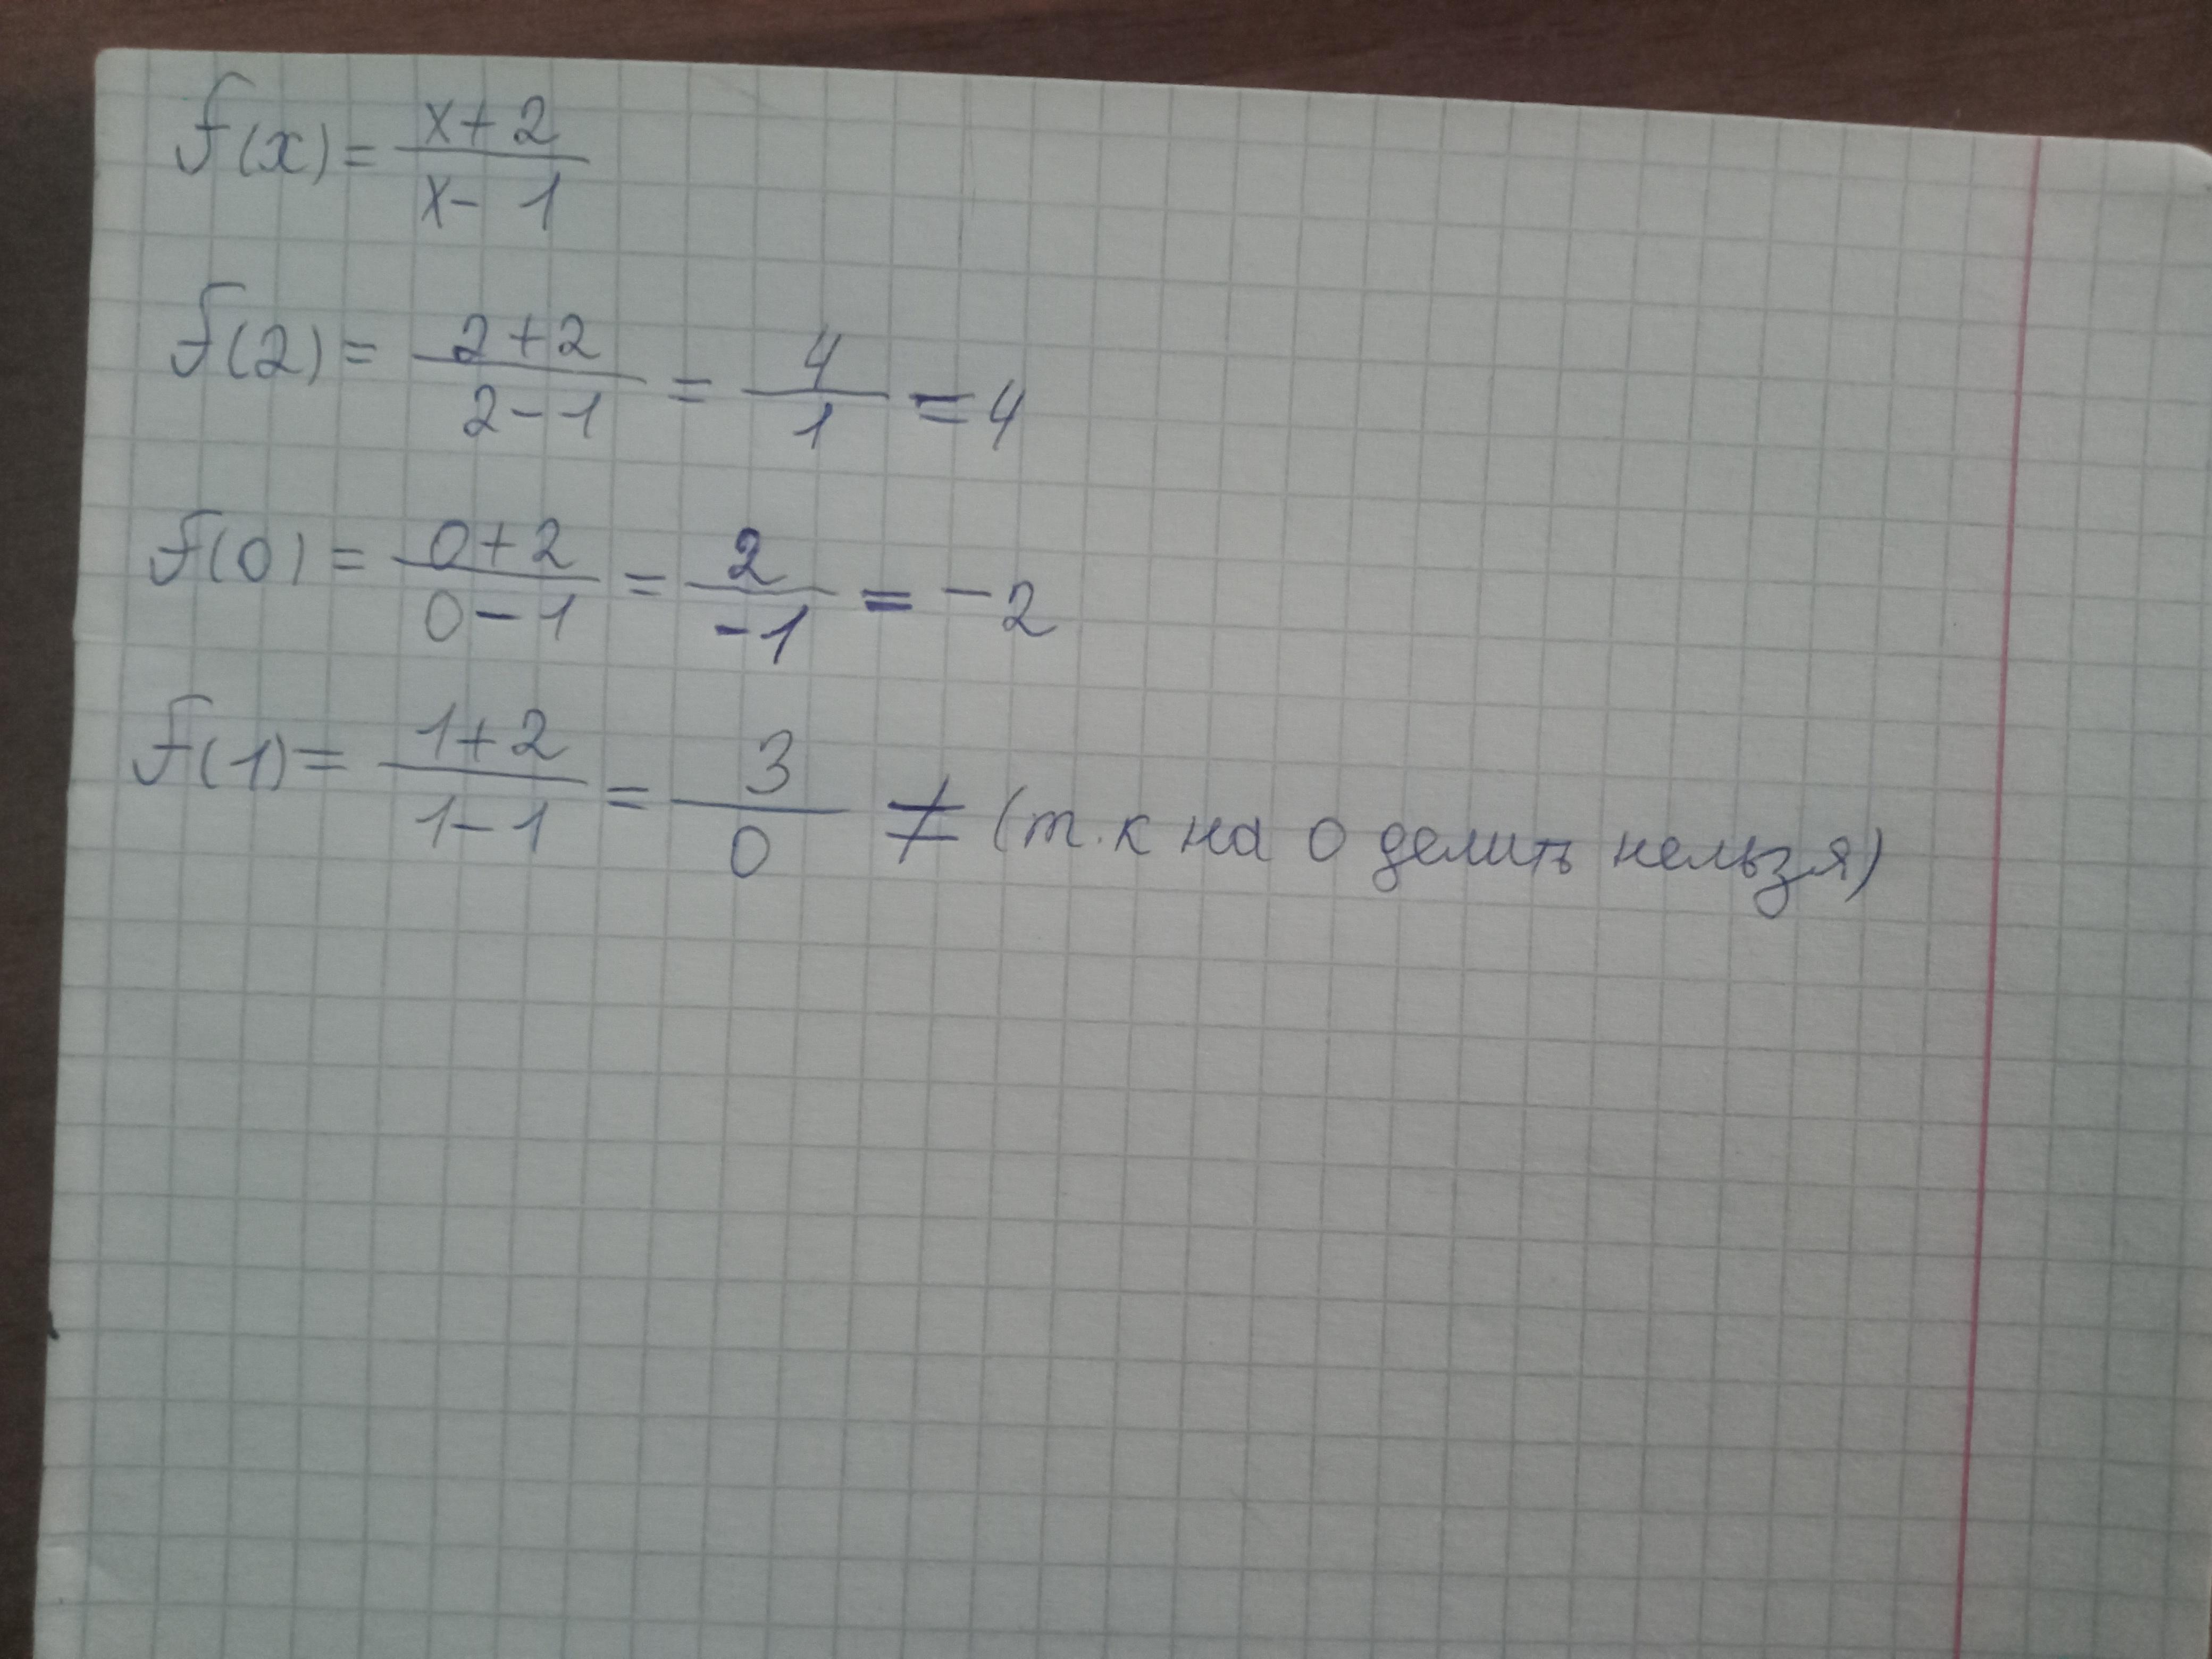 f(x) = (x+2)/(x-1)
f(2) = (2+2)/(2-1) = 4/1 = 4
f(0) = (0+2)/(0-1) = 2/-1 = -2
f(1) = (1+2)/(1-1) = 3/0 ≠ (т.к на 0 делить нельзя)